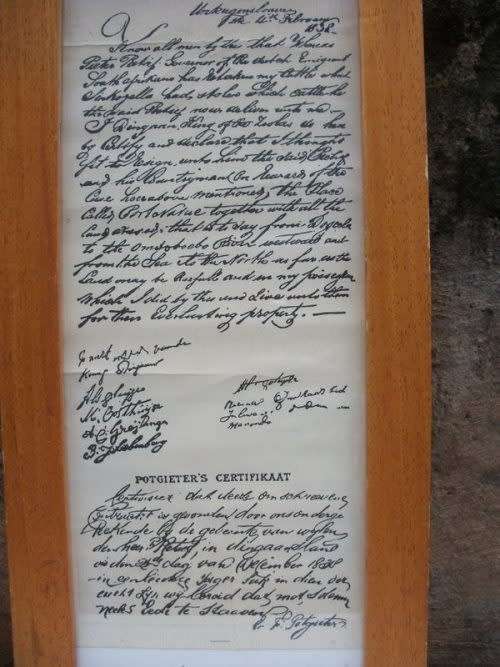 the 4th February
1838
Know all men by this that Whereas
Pieter Retief Governor of the dutch Emigrant
South afrikans has Retaken my Cattle which
Sinkonyella had stolen which cattle he
the said Retief now deliver unto me
I Dingaan, King of the Zoolas do here
by Certify and declare that I thought
fit to Resign unto him the said Retief
and his Countrymen on Reward of the
Case hereabove mentioned the Place
Called Port Natal together with all the
land annexed, that is to say from Dogela
to the Omsoboebo River westward and
from the Sea to the North as far as the
Land may be Usefull and in my possession
Which I did by this and Give unto them
for their Everlasting property. —
King Dingaan
M. Oosthuizen
A C Greyling
B J Liebenberg
Moaro
POTGIETER'S CERTIFIKAAT
Certificeere dat deeze
is gevonden door ons onderge
tekende by de gebeente van wylen
den heer Retief in dingaans land
op den dag van December 1838
in een lederen Jager Sak
eischt Zyn wy bereid dat met Solemn
neele Eede te Staaven
E. F. Potgieter